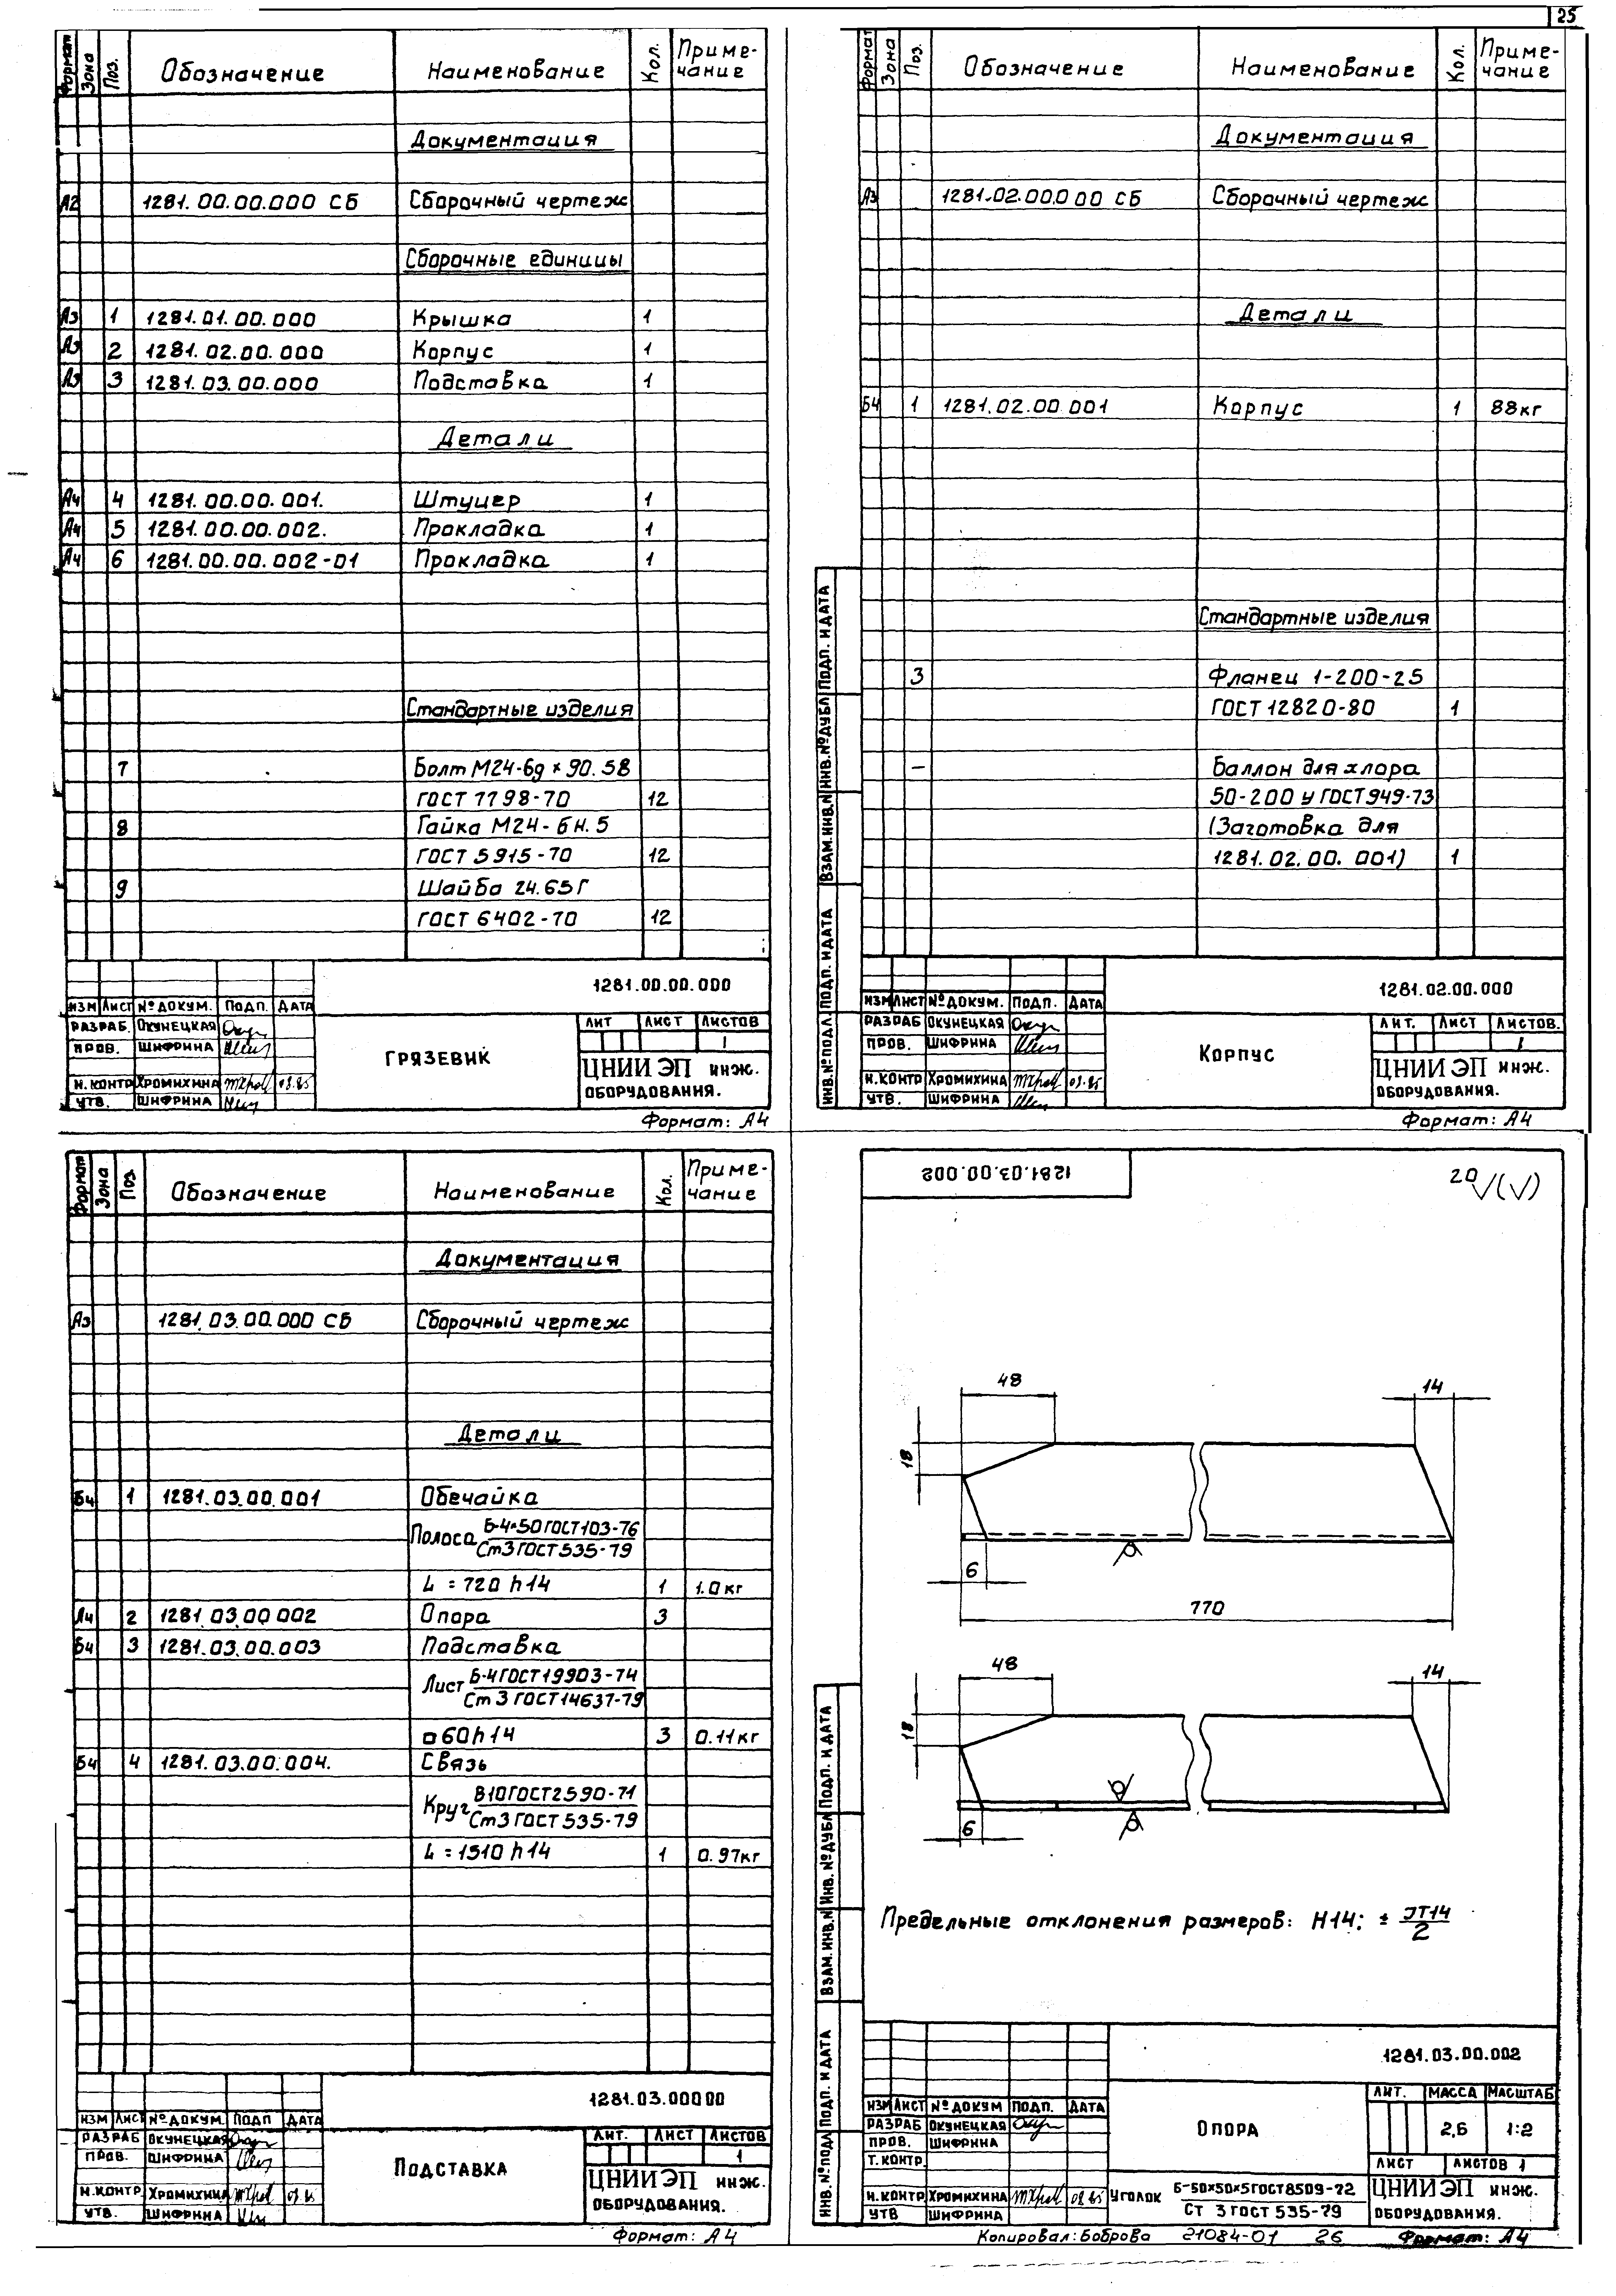 25
Формат Зона Поз. Обозначение Наименование Кол. Приме-
чание
Документация
А2 1281.00.00.000 СБ Сборочный чертеж
Сборочные единицы
А3 1 1281.01.00.000 Крышка 1
А3 2 1281.02.00.000 Корпус 1
А3 3 1281.03.00.000 Подставка 1
Детали
А4 4 1281.00.00.001. Штуцер 1
А4 5 1281.00.00.002. Прокладка 1
А4 6 1281.00.00.002-01 Прокладка 1
Стандартные изделия
7 Болт М24-6g×90.58
ГОСТ 7798-70 12
8 Гайка М24-6Н.5
ГОСТ 5915-70 12
9 Шайба 24.65Г
ГОСТ 6402-70 12
1281.00.00.000
ИЗМ ЛИСТ № ДОКУМ. ПОДП. ДАТА
РАЗРАБ. ОКУНЕЦКАЯ
ПРОВ. ШИФРИНА
Н.КОНТР ХРОМИХИНА
УТВ. ШИФРИНА
ГРЯЗЕВИК
ЛИТ ЛИСТ ЛИСТОВ
1
ЦНИИ ЭП ИНЖ.
ОБОРУДОВАНИЯ.
Формат: А4
Формат Зона Поз. Обозначение Наименование Кол. Приме-
чание
Документация
А3 1281.02.00.000 СБ Сборочный чертеж
Детали
Б4 1 1281.02.00 001 Корпус 1 88кг
Стандартные изделия
3 Фланец 1-200-25
ГОСТ 12820-80 1
– Баллон для хлора
50-200 У ГОСТ 949-73
(Заготовка для
1281.02.00.001) 1
ИНВ.№ ПОДЛ. ПОДП. И ДАТА ВЗАМ.ИНВ.№ ИНВ.№ ДУБЛ ПОДП. И ДАТА
1281.02.00.000
ИЗМ ЛИСТ № ДОКУМ. ПОДП. ДАТА
РАЗРАБ ОКУНЕЦКАЯ
ПРОВ. ШИФРИНА
Н.КОНТР ХРОМИХИНА
УТВ. ШИФРИНА
КОРПУС
ЛИТ. ЛИСТ ЛИСТОВ.
1
ЦНИИ ЭП ИНЖ.
ОБОРУДОВАНИЯ.
Формат: А4
Формат Зона Поз. Обозначение Наименование Кол. Приме-
чание
Документация
А3 1281.03.00.000 СБ Сборочный чертеж
Детали
Б4 1 1281.03.00.001 Обечайка
Полоса Б-4×50 ГОСТ 103-76
Ст3 ГОСТ 535-79
L = 720 h14 1 1.0кг
А4 2 1281.03.00 002 Опора 3
Б4 3 1281.03.00.003 Подставка
Лист Б-4 ГОСТ 19903-74
Ст 3 ГОСТ 14637-79
□ 60h14 3 0.11кг
Б4 4 1281.03.00.004. Связь
Круг В10 ГОСТ 2590-71
Ст3 ГОСТ 535-79
L = 1510 h14 1 0.97кг
1281.03.00000
ИЗМ ЛИСТ № ДОКУМ. ПОДП ДАТА
РАЗРАБ ОКУНЕЦКАЯ
ПРОВ. ШИФРИНА
Н.КОНТР. ХРОМИХИНА
УТВ. ШИФРИНА
ПОДСТАВКА
ЛИТ. ЛИСТ ЛИСТОВ
1
ЦНИИ ЭП ИНЖ.
ОБОРУДОВАНИЯ.
Формат: А4
1281.03.00.002
20 √(√)
48
14
18
6
770
48
14
18
6
Предельные отклонения размеров: Н14; ± JT14
2
ИНВ.№ ПОДЛ ПОДП. И ДАТА ВЗАМ.ИНВ.№ ИНВ.№ ДУБЛ ПОДП. И ДАТА
1281.03.00.002
ИЗМ ЛИСТ № ДОКУМ ПОДП. ДАТА
РАЗРАБ ОКУНЕЦКАЯ
ПРОВ. ШИФРИНА
Т.КОНТР.
Н.КОНТР ХРОМИХИНА
УТВ ШИФРИНА
ОПОРА
ЛИТ. МАССА МАСШТАБ
2,6 1:2
ЛИСТ ЛИСТОВ 1
УГОЛОК Б-50×50×5 ГОСТ 8509-72
СТ 3 ГОСТ 535-79
ЦНИИ ЭП ИНЖ.
ОБОРУДОВАНИЯ.
Копировал: Боброва 21084-01 26 Формат: А4